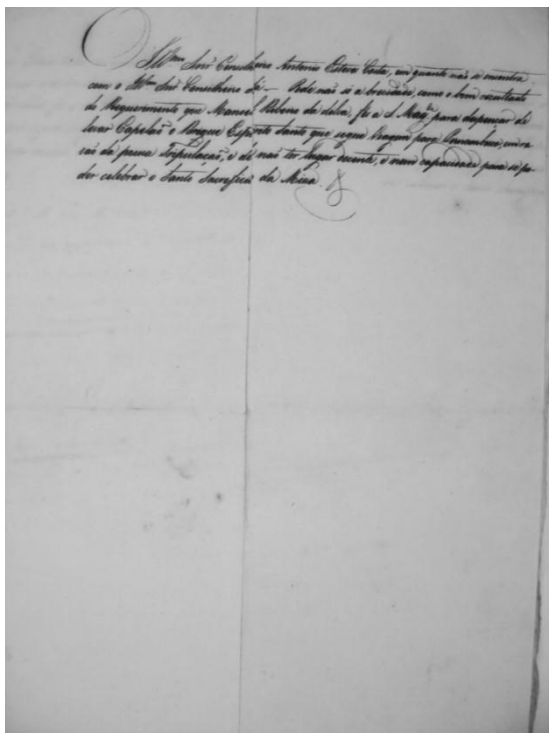 Illmo Snr Conselheiro Antonio Esteve Costa, em quanto não se encontra
com o Illmo Snr Conselheiro Sá — Pede não só a brevidade, como o bom rezultado
do Requerimento que Manoel Ribeiro da Silva, fez a S. Magde para dispensar de
levar Capelão o Bergue Espirito Santo que segue Viagem para Pernambuco, em ra-
cão da pouca Tripulacaõ, e de não ter lugar decente, e nem capacidade para se po-
der celebrar o Santo Sacreficio da Missa.